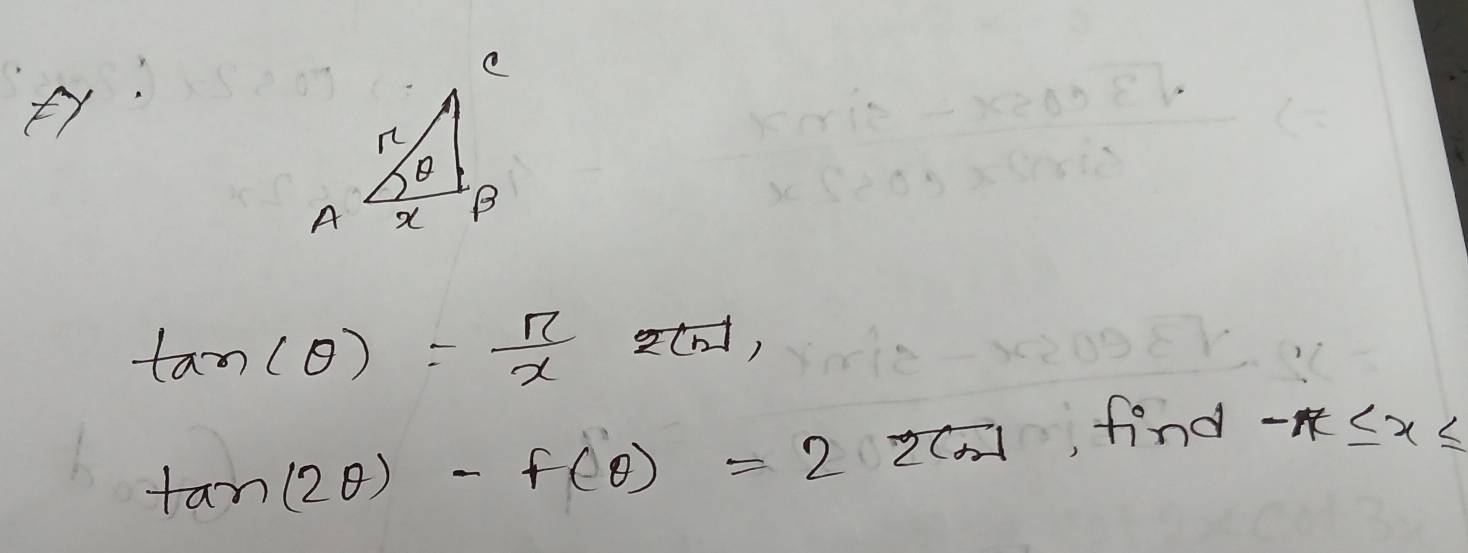 C
r
θ
A x B
tan(θ) = r/x হলে,
tan(2θ) - f(θ) = 2 হলে, find -π ≤ x ≤